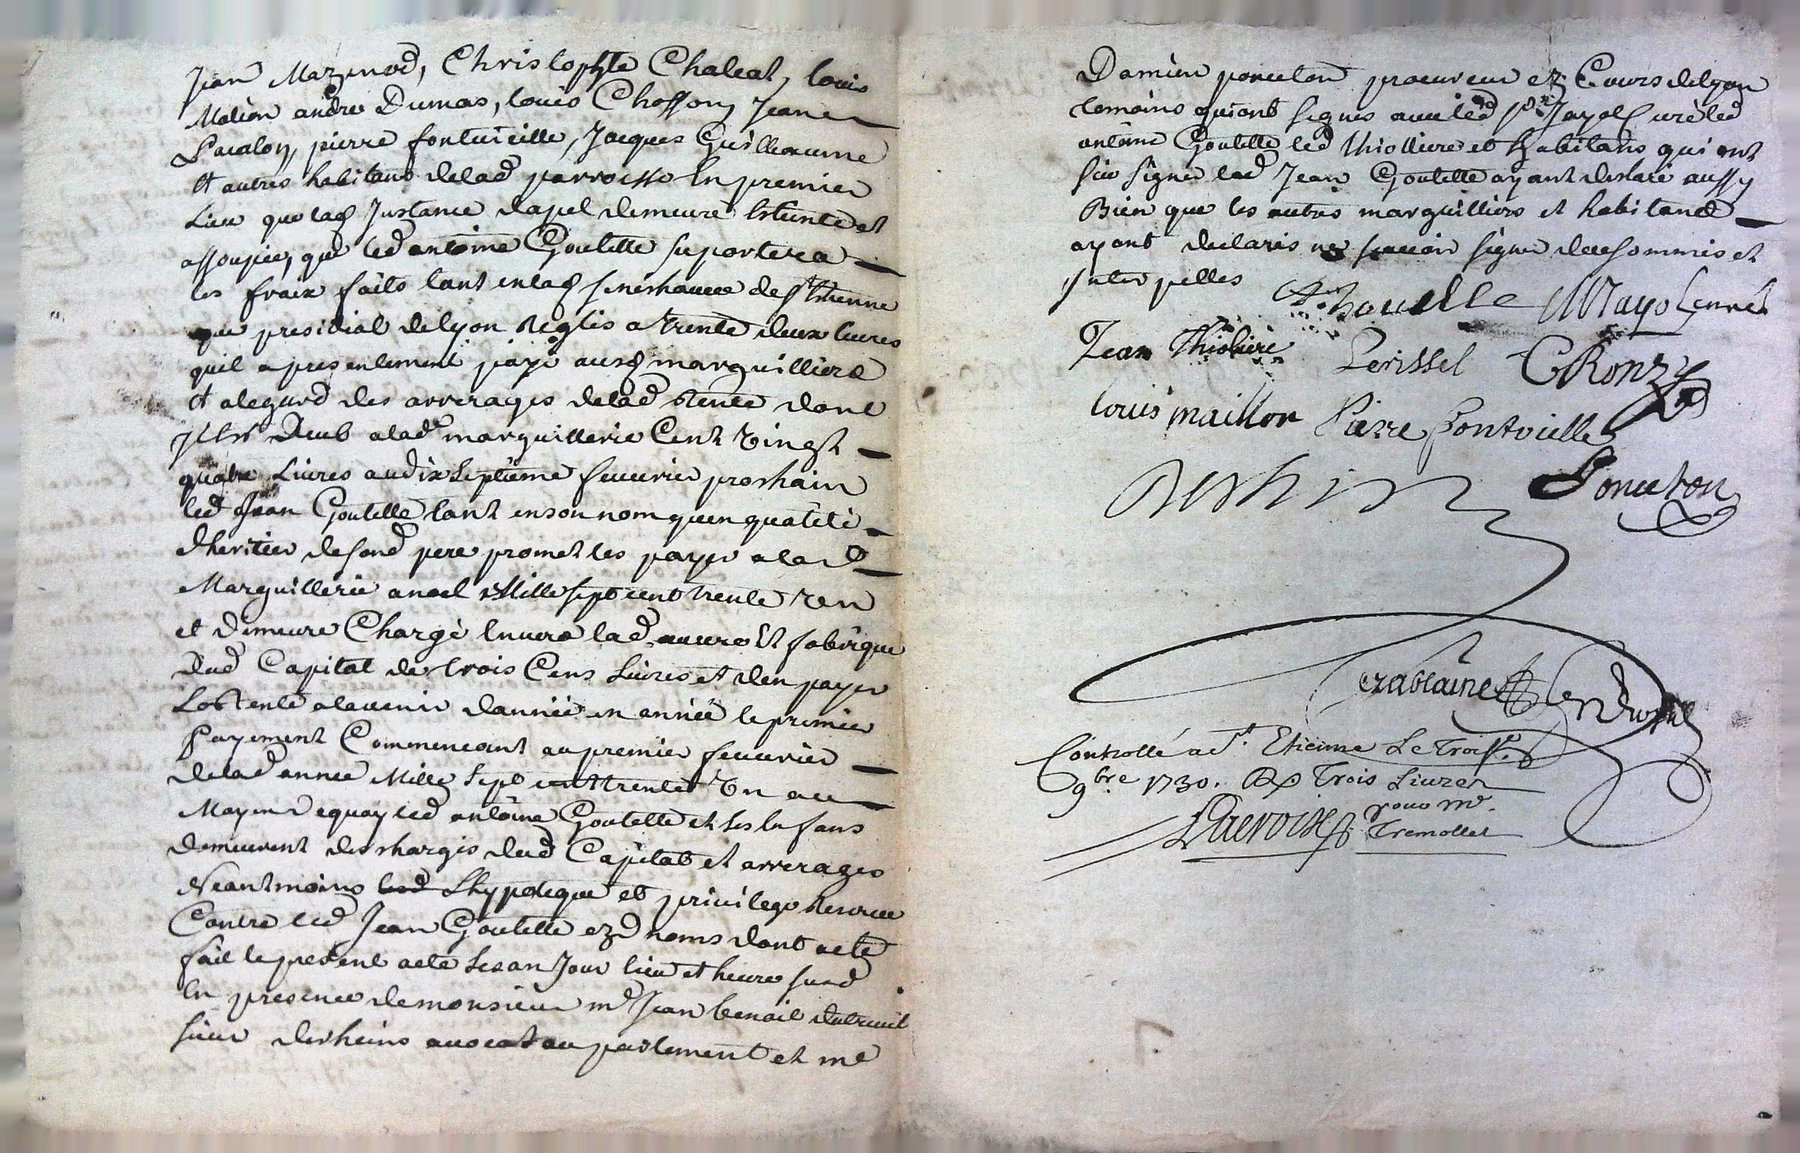 Jean Mazenod, Christophle Chaleat, louis
Molion andré Dumas, louis Chosson, Jean
Pacalon, pierre fontvieille, Jacques Guilleaume
Et autres habitans delad parroisse En premier
Lieu que lad Jnstance dapel demeure Esteinte et
assoupie, que led antoine Goutelle suportera
les fraix faits tant enlad senechaucé de st Etienne
que presidial de lyon Reglés a trente deux livres
quil a presentement payé ausd marguilliers
Et alegard des arrerages delad Rente dont
Jl est Deub alade marguillerie Cent vingt
quatre Livres audix septieme fevurier prochain
led Jean Goutelle tant en son nom quen qualité
dheritier de sond pere promet les payer alad
Marguillerie anoel Mille sept cent trente Un
et demeure Chargé Envers lad œuvre Et fabrique
Dud Capital de trois Cens Livres et den payer
La Rente alavenir dannée en année le premier
Payement Commencant au premier fevurier
delad année Mille sept cent trente Un au
Moyen dequoy led antoine Goutelle et ses Enfans
demeurent deschargés dud Capital et arrerages
Neantmoins Lhypoteque et privilege Reservé
Contre led Jean Goutelle ezd noms dont acte
fait le present acte les an Jour lieu et heure susd
En presence de monsieur me Jean benoit dutreuil
sieur desheins avocat au parlement et me
Damien ponceton procureur ez Cours de lyon
temoins qui ont signés avec led sr Mayol Curé led
antoine Goutelle led thiolliere et habitans qui ont
sceu signer led Jean Goutelle ayant declaré aussy
Bien que les autres marguilliers et habitans
ayant declarés ne scavoir signer de ce sommés et
Jnterpellés
A. Goutelle Mayol curé
Jean Thioliere Perissel C Ronzy
louis maillon Pierre Fontvielle
Desheins Ponceton
Controllé a St. Etienne Le Trois
9bre 1730. Rx Trois Livres
pour mr.
Lacroix Tremollet